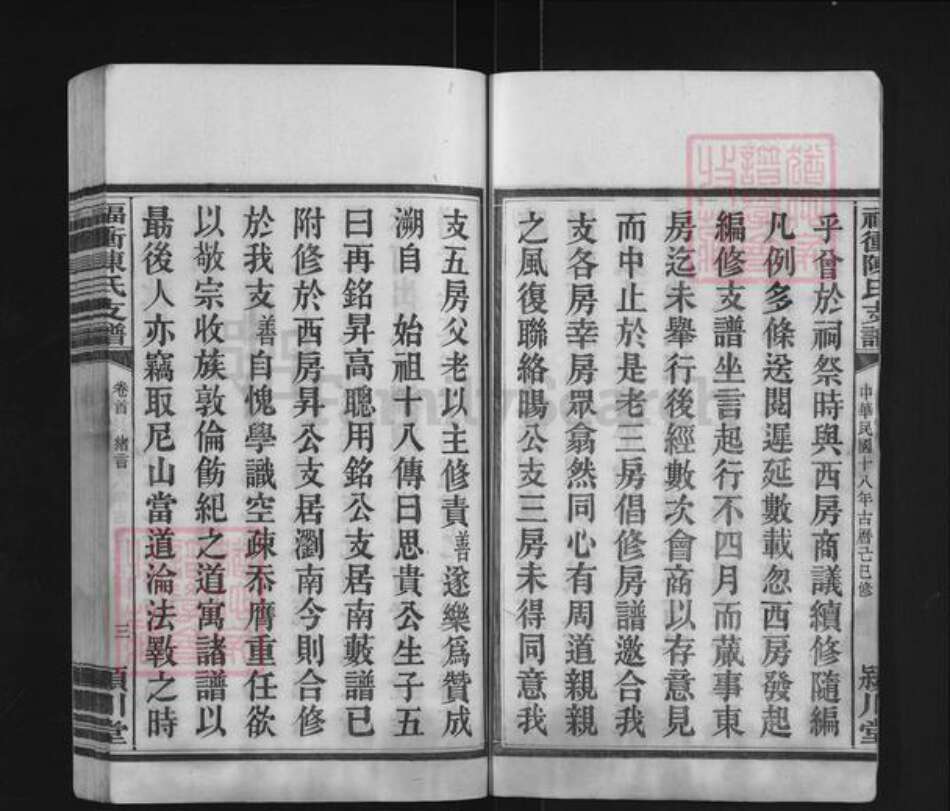 福衝陳氏支譜
中華民國十八年古曆己巳修
潁川堂
乎曾於祠祭時與西房商議續修隨編
凡例多條送閱遲延數載忽西房發起
編修支譜坐言起行不四月而蕆事東
房迄未舉行後經數次會商以存意見
而中止於是老三房倡修房譜邀合我
支各房幸房眾翕然同心有周道親親
之風復聯絡暘公支三房未得同意我
支五房父老以主修責善遂樂為贊成
溯自 始祖十八傳曰思貴公生子五
曰再銘昇高聰用銘公支居南藪譜已
附修於西房昇公支居瀏南今則合修
於我支善自愧學識空疎忝膺重任欲
以敬宗收族敦倫飭紀之道寓諸譜以
朂後人亦竊取尼山當道淪法斁之時
福衝陳氏支譜
卷首 緒言
三
潁川堂
FamilySearch